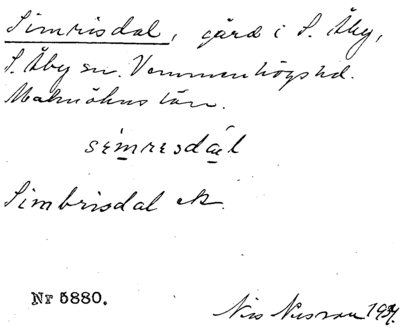 Simrisdal, gård i S. Åby,
S. Åby sn. Vemmenhögs hd.
Malmöhus län.
simresdál
Simbrisdal ek.
Nr 5880.
Nils Nilsson